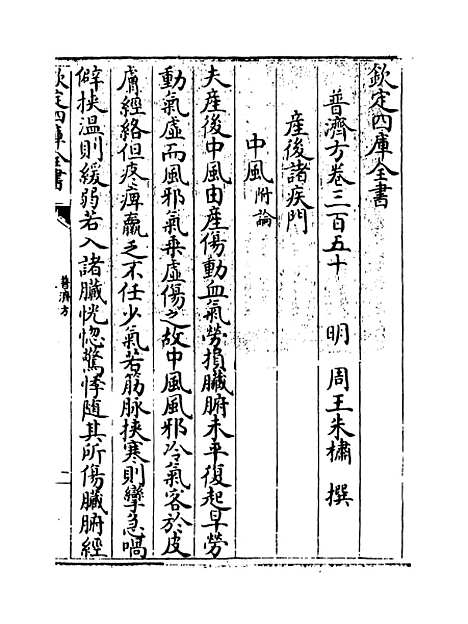 欽定四庫全書
普濟方卷三百五十　明　周王朱橚　撰
產後諸疾門
中風附論
夫產後中風由產傷動血氣勞損臟腑未平復起早勞
動氣虛而風邪氣乘虛傷之故中風風邪冷氣客於皮
膚經絡但皮痺羸乏不任少氣若筋脉挾寒則攣急喎
僻挾温則緩弱若入諸臟恍惚驚悸隨其所傷臟腑經
欽定四庫全書
普濟方